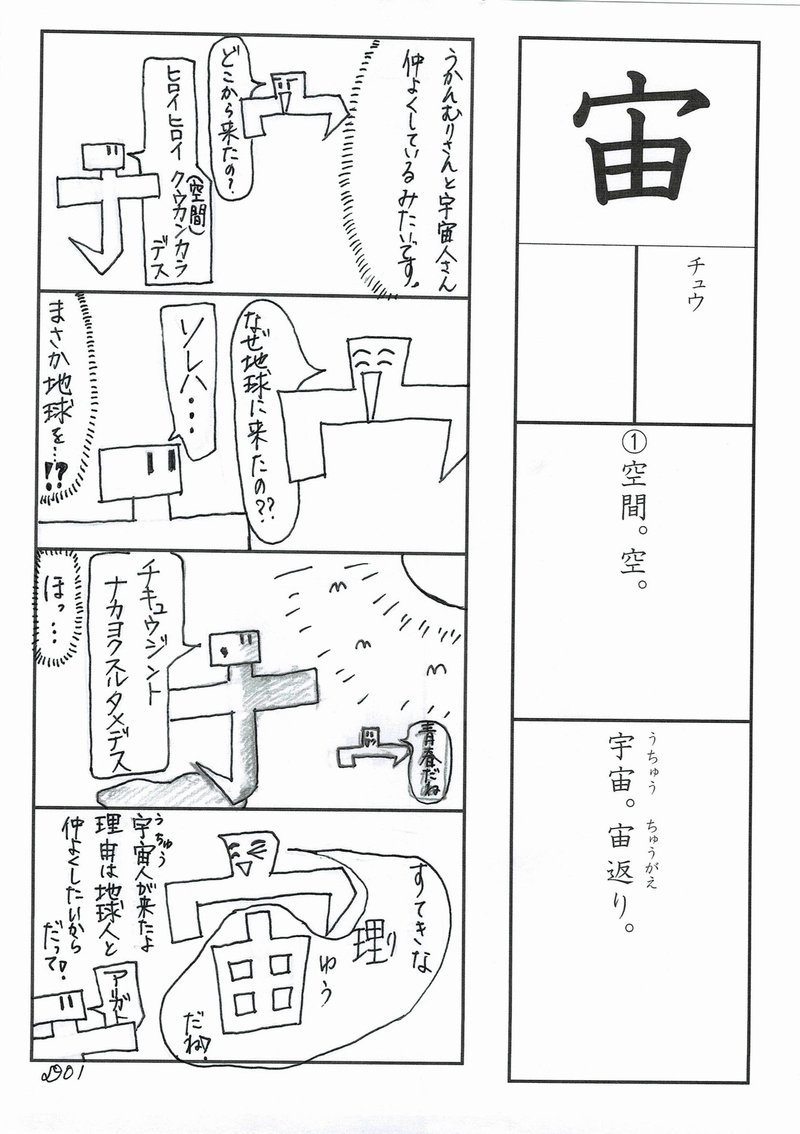 宙
チュウ
①空間。空。
うちゅう ちゅうがえ
宇宙。宙返り。
うかんむりさんと宇宙人さん
仲よくしているみたいです。
どこから来たの?
ヒロイヒロイ
(空間)
クウカンカラ
デス
なぜ地球に来たの??
ソレハ...
まさか地球を...!?
青春だね
チキュウジント
ナカヨクスルタメデス
ほっ...
すてきな
理り
由
ゆう
だね!
うちゅう
宇宙人が来たよ
理由は地球人と
仲よくしたいから
だって!
アリガト